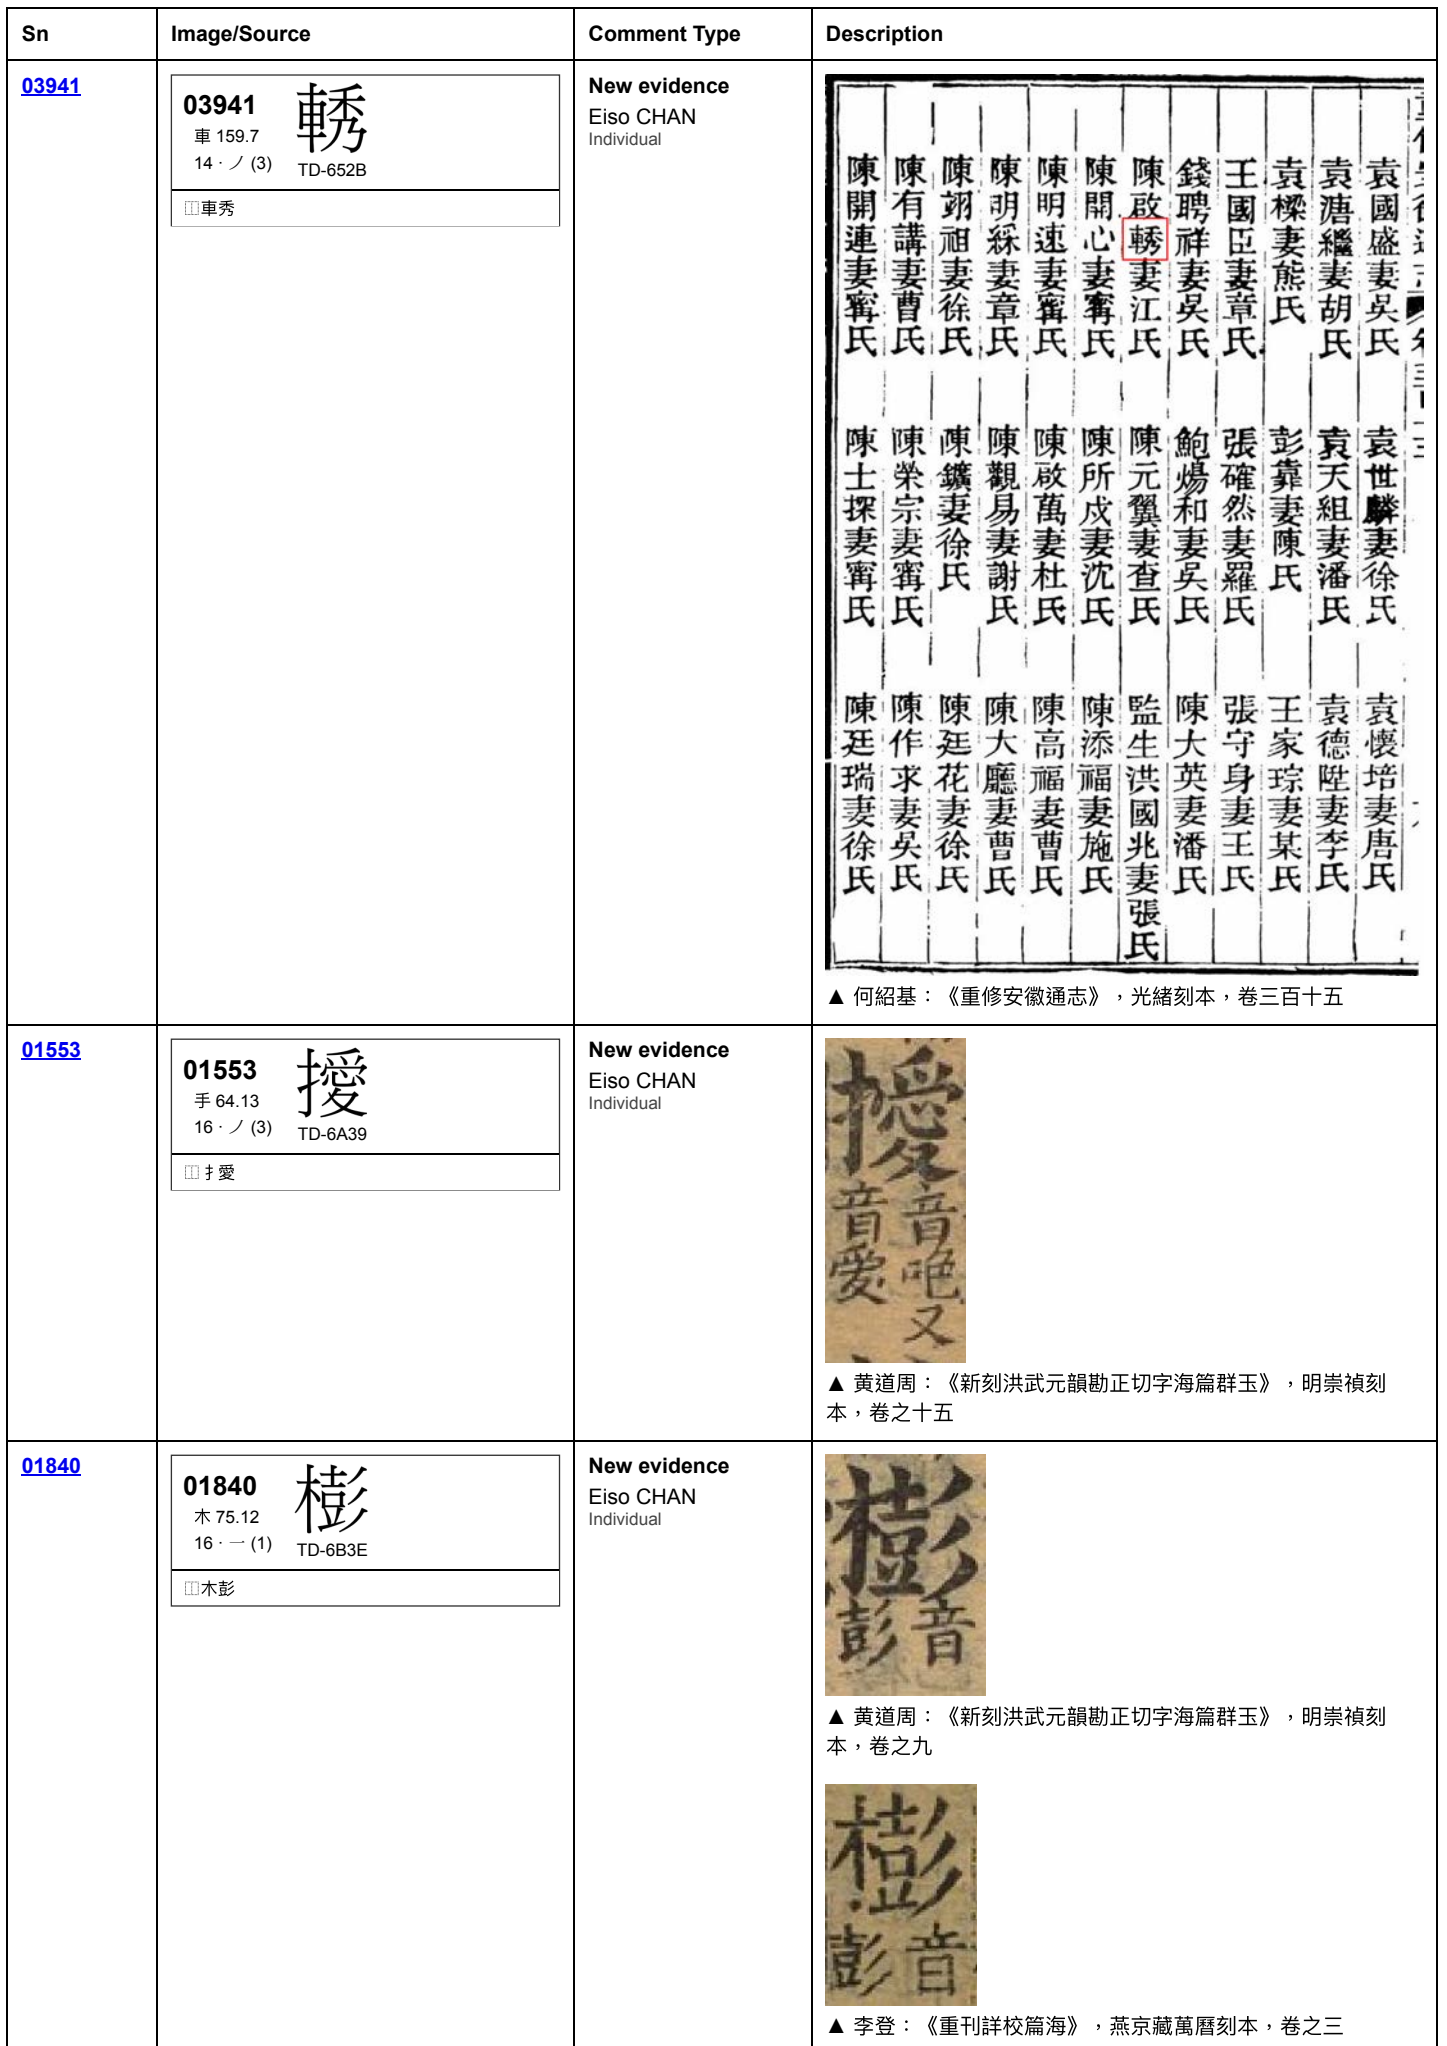 Sn Image/Source Comment Type Description
03941
03941
車 159.7
14 · ノ (3)
TD-652B
⿰車秀
New evidence
Eiso CHAN
Individual
袁國盛妻吳氏 袁世麟妻徐氏 袁懷培妻唐氏
袁溏繼妻胡氏 袁天組妻潘氏 袁德陞妻李氏
袁樑妻熊氏 彭靠妻陳氏 王家琮妻某氏
王國臣妻章氏 張確然妻羅氏 張守身妻王氏
錢聘祥妻吳氏 鮑煬和妻吳氏 陳大英妻潘氏
陳啟⿰車秀妻江氏 陳元翼妻查氏 監生洪國兆妻張氏
陳開心妻甯氏 陳所成妻沈氏 陳添福妻施氏
陳明速妻甯氏 陳啟萬妻杜氏 陳高福妻曹氏
陳明綵妻章氏 陳觀易妻謝氏 陳大廳妻曹氏
陳翊祖妻徐氏 陳鑛妻徐氏 陳廷花妻徐氏
陳有講妻曹氏 陳榮宗妻甯氏 陳作求妻吳氏
陳開連妻甯氏 陳士探妻甯氏 陳廷瑞妻徐氏
▲ 何紹基：《重修安徽通志》，光緒刻本，卷三百十五
01553
01553
手 64.13
16 · ノ (3)
TD-6A39
⿰扌愛
New evidence
Eiso CHAN
Individual
⿰扌愛
音唈又
音愛
▲ 黄道周：《新刻洪武元韻勘正切字海篇群玉》，明崇禎刻
本，卷之十五
01840
01840
木 75.12
16 · 一 (1)
TD-6B3E
⿰木彭
New evidence
Eiso CHAN
Individual
⿰木彭
音
彭
▲ 黄道周：《新刻洪武元韻勘正切字海篇群玉》，明崇禎刻
本，卷之九
⿰木彭
音
彭
▲ 李登：《重刊詳校篇海》，燕京藏萬曆刻本，卷之三